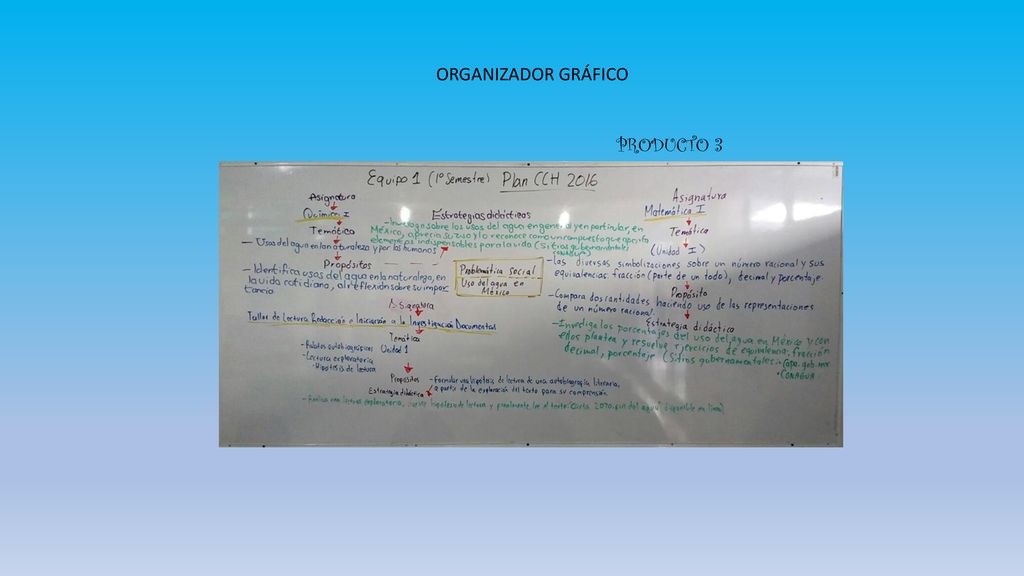 ORGANIZADOR GRÁFICO
PRODUCTO 3
Equipo 1 (1º Semestre) Plan CCH 2016
Asignatura
Química I
Temática
— Usos del agua en la naturaleza y por los humanos
Propósitos
— Identifica usos del agua en la naturaleza, en
la vida cotidiana, al reflexión sobre su impor
tancia
Estrategias didácticas
- Investiga sobre los usos del agua en general y en particular, en
México, aprecia su uso y lo reconoce como un compuesto que aporta
elementos indispensables para la vida (Sitios gubernamentales)
Problemática social
Uso del agua en
México
Asignatura
Taller de Lectura Redacción e Iniciación a la Investigación Documental
Temática
Unidad 1
- Relatos autobiográficos
- Lectura exploratoria
- Hipótesis de lectura
Propósitos
- Formular una hipótesis de lectura de una autobiografía literaria,
a partir de la exploración del texto para su comprensión.
Estrategia didáctica
- Realiza una lectura exploratoria, hipótesis de lectura y finalmente lee el texto: Carta 2070 disponible en línea)
Asignatura
Matemática I
Temática
(Unidad I)
- Las diversas simbolizaciones sobre un número racional y sus
equivalencias: fracción (parte de un todo), decimal y porcentaje.
Propósito
- Compara dos cantidades haciendo uso de las representaciones
de un número racional.
Estrategia didáctica
- Investiga los porcentajes del uso del agua en México y con
ellos plantea y resuelve ejercicios de equivalencia: fracción
decimal, porcentaje (Sitios gubernamentales:
• CONAGUA